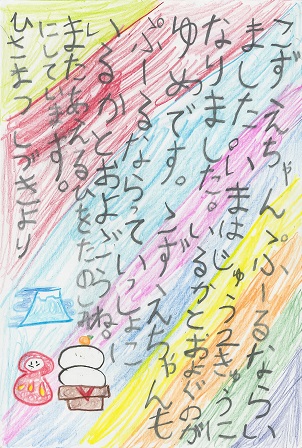 こずえちゃん、ぷーるならい
ました。いまはじゅう2きゅうに
なりました。いるかとおよぐのが
ゆめです。こずえちゃんも
ぷーるならっていっしょに
いるかとおよごうね。
またあえるひをたのしみ
にしています。
ひさまつ しづさより